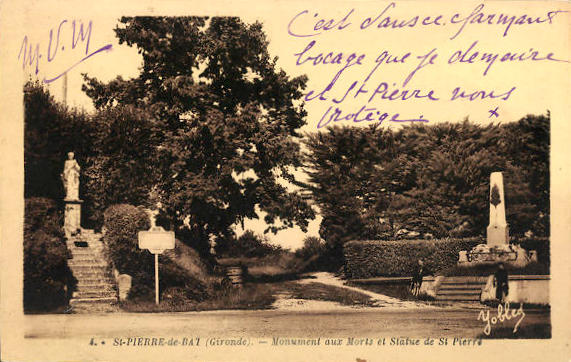 M.V.M
C'est dans ce charmant
bocage que je demeure
et St Pierre nous
protège
4. - St-PIERRE-de-BAT (Gironde). - Monument aux Morts et Statue de St Pierre
Yobled